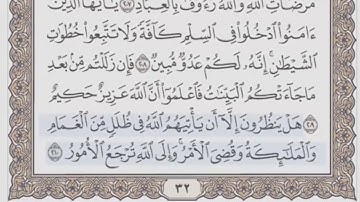 مَرْضَاتِ ٱللَّهِ وَٱللَّهُ رَءُوفٌۢ بِٱلْعِبَادِ ٢٠٧ يَٰٓأَيُّهَا ٱلَّذِينَ
ءَامَنُوا۟ ٱدْخُلُوا۟ فِى ٱلسِّلْمِ كَآفَّةً وَلَا تَتَّبِعُوا۟ خُطُوَٰتِ
ٱلشَّيْطَٰنِ إِنَّهُۥ لَكُمْ عَدُوٌّ مُّبِينٌ ٢٠٨ فَإِن زَلَلْتُم مِّنۢ بَعْدِ
مَا جَآءَتْكُمُ ٱلْبَيِّنَٰتُ فَٱعْلَمُوٓا۟ أَنَّ ٱللَّهَ عَزِيزٌ حَكِيمٌ
٢٠٩ هَلْ يَنظُرُونَ إِلَّآ أَن يَأْتِيَهُمُ ٱللَّهُ فِى ظُلَلٍ مِّنَ ٱلْغَمَامِ
وَٱلْمَلَٰٓئِكَةُ وَقُضِىَ ٱلْأَمْرُ وَإِلَى ٱللَّهِ تُرْجَعُ ٱلْأُمُورُ ٢١٠
٣٢